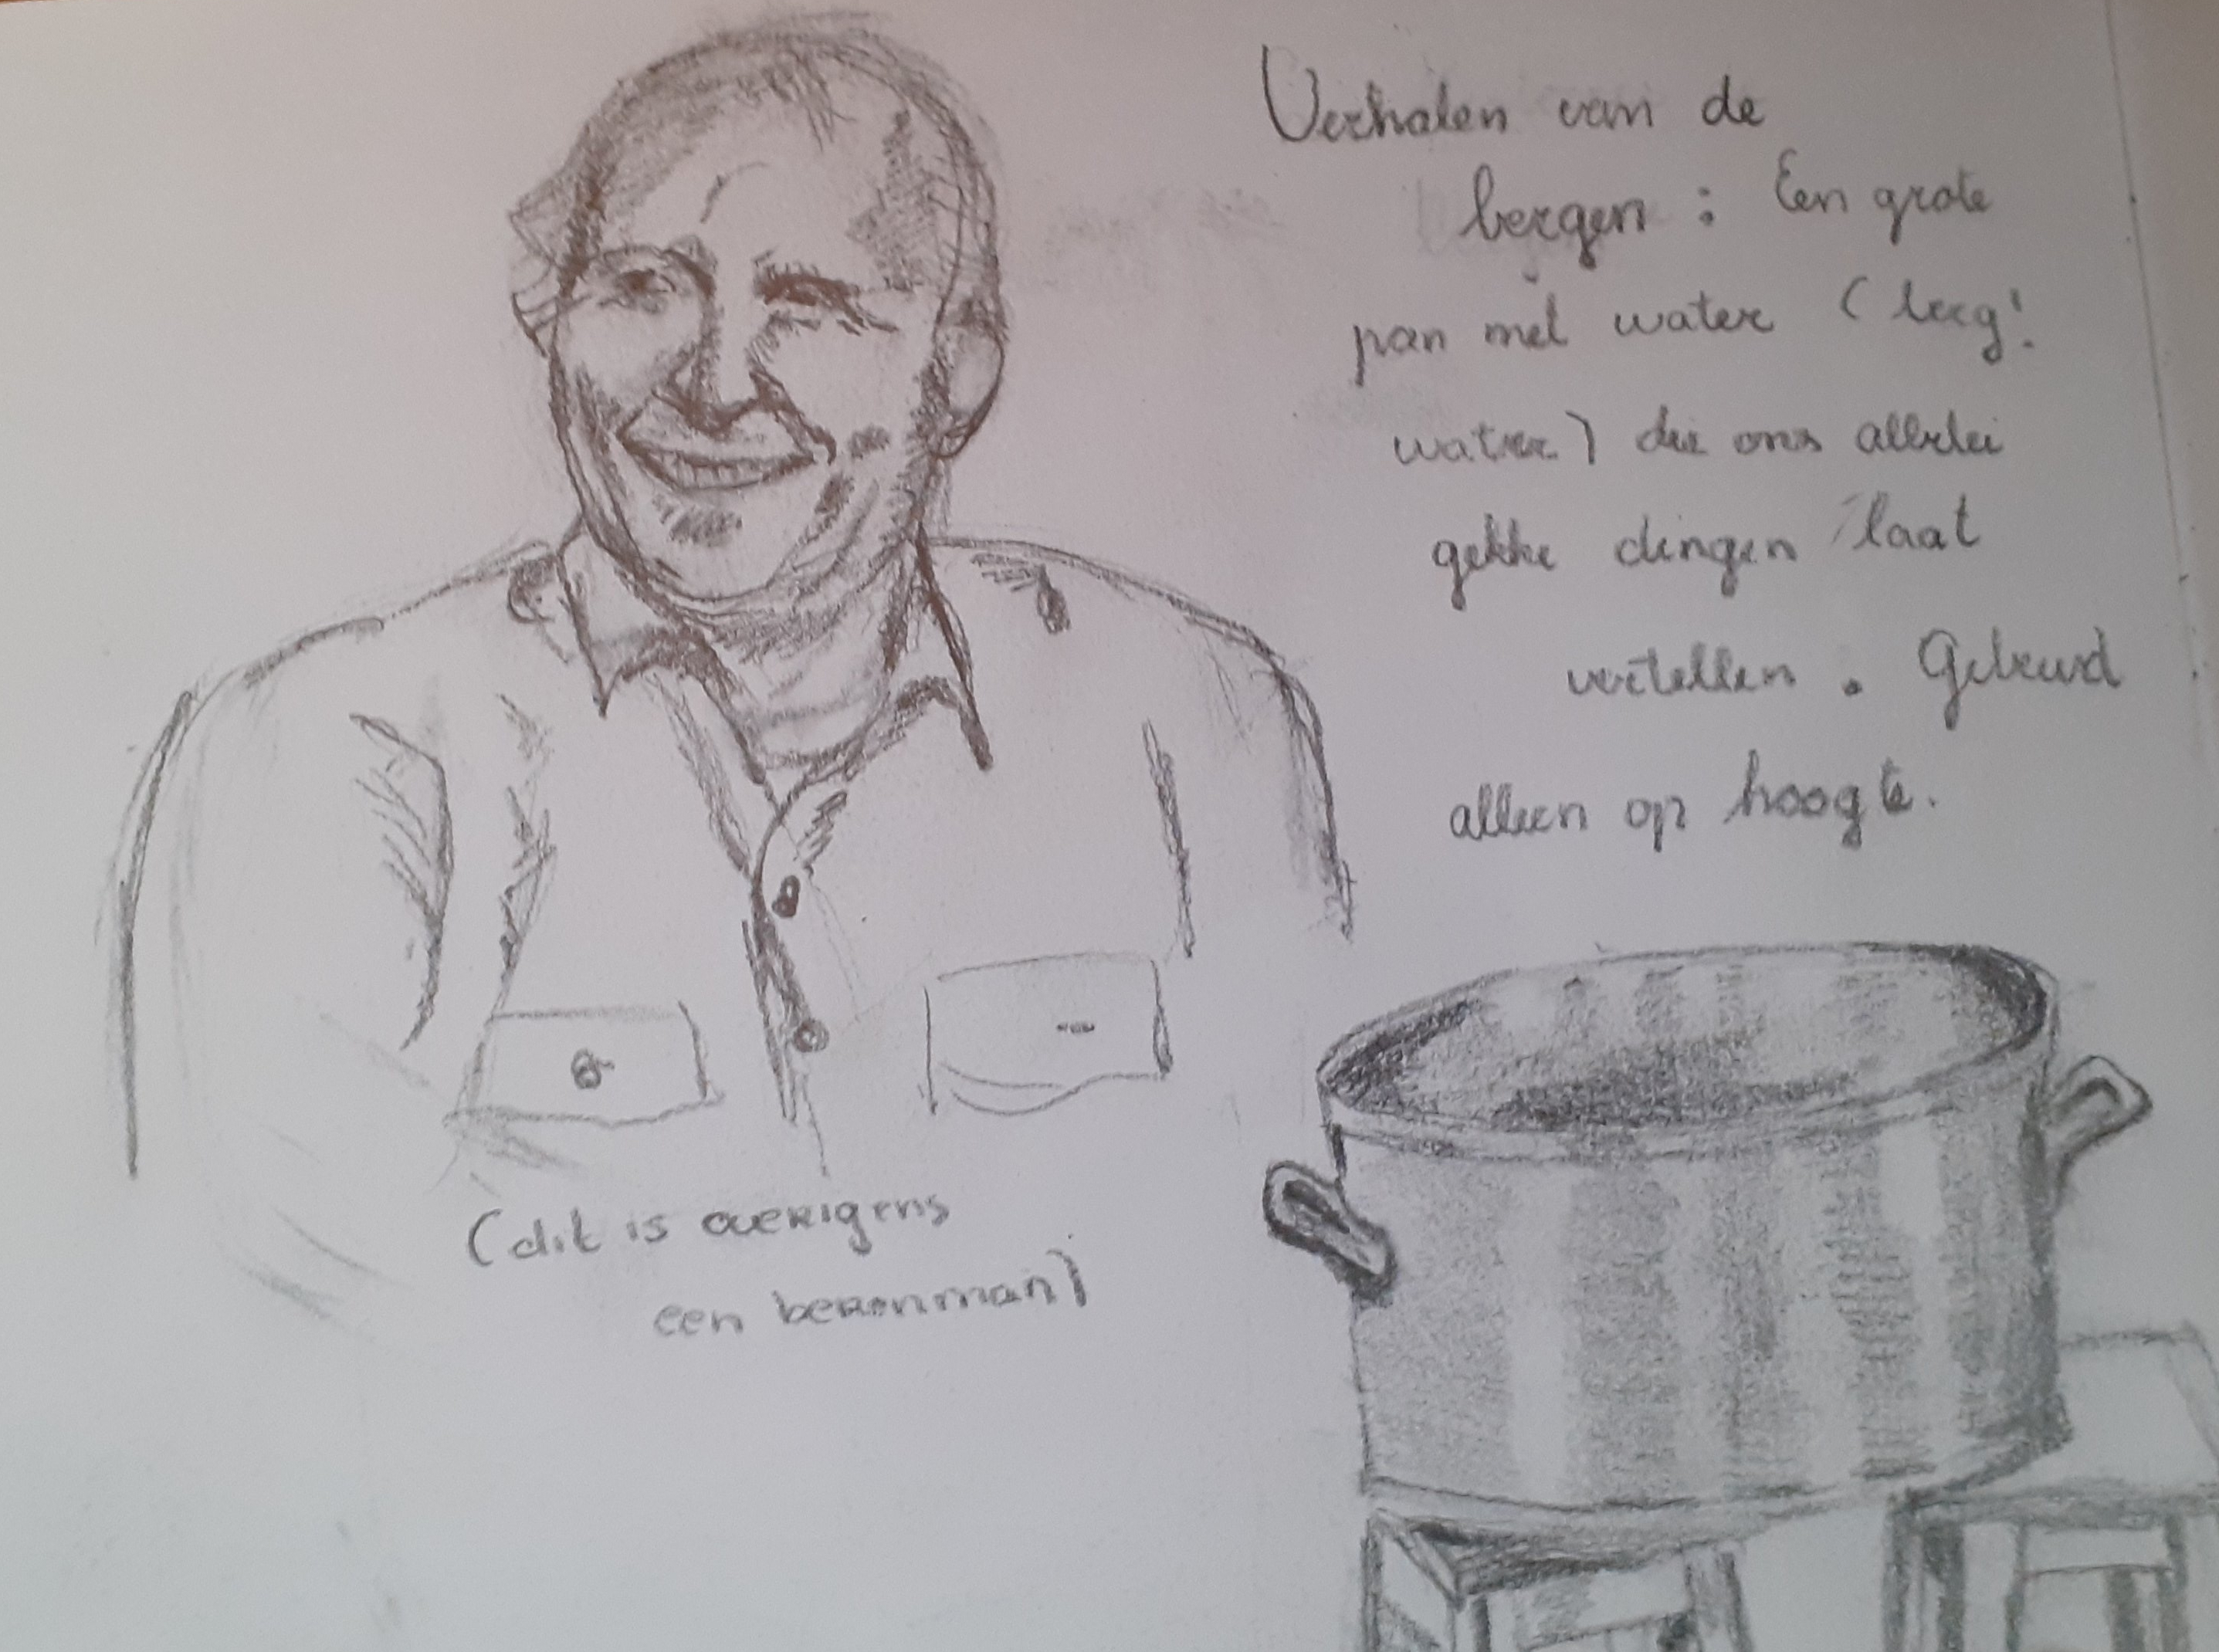 Verhalen van de
bergen : Een grote
pan met water (leeg!
water) die ons allerlei
gekke dingen laat
vertellen. Gebeurd
alleen op hoogte.
(dit is overigens
een